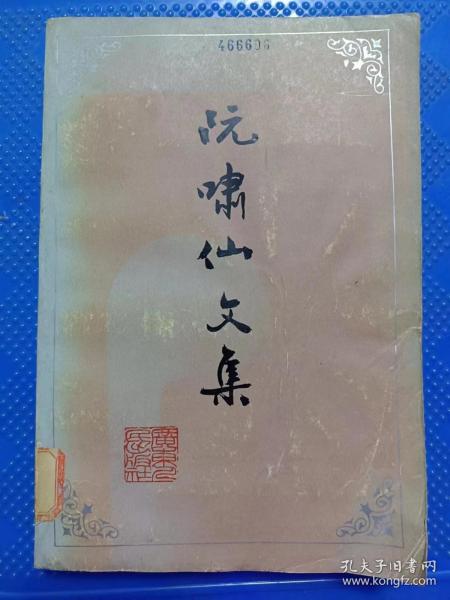 466606
阮啸仙文集
廣東人民出版社
孔夫子旧书网
www.kongfz.com